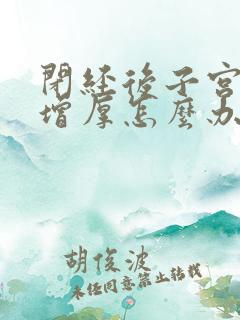 閉經後子宮
增厚怎麼办
胡俊波
未经同意禁止转载